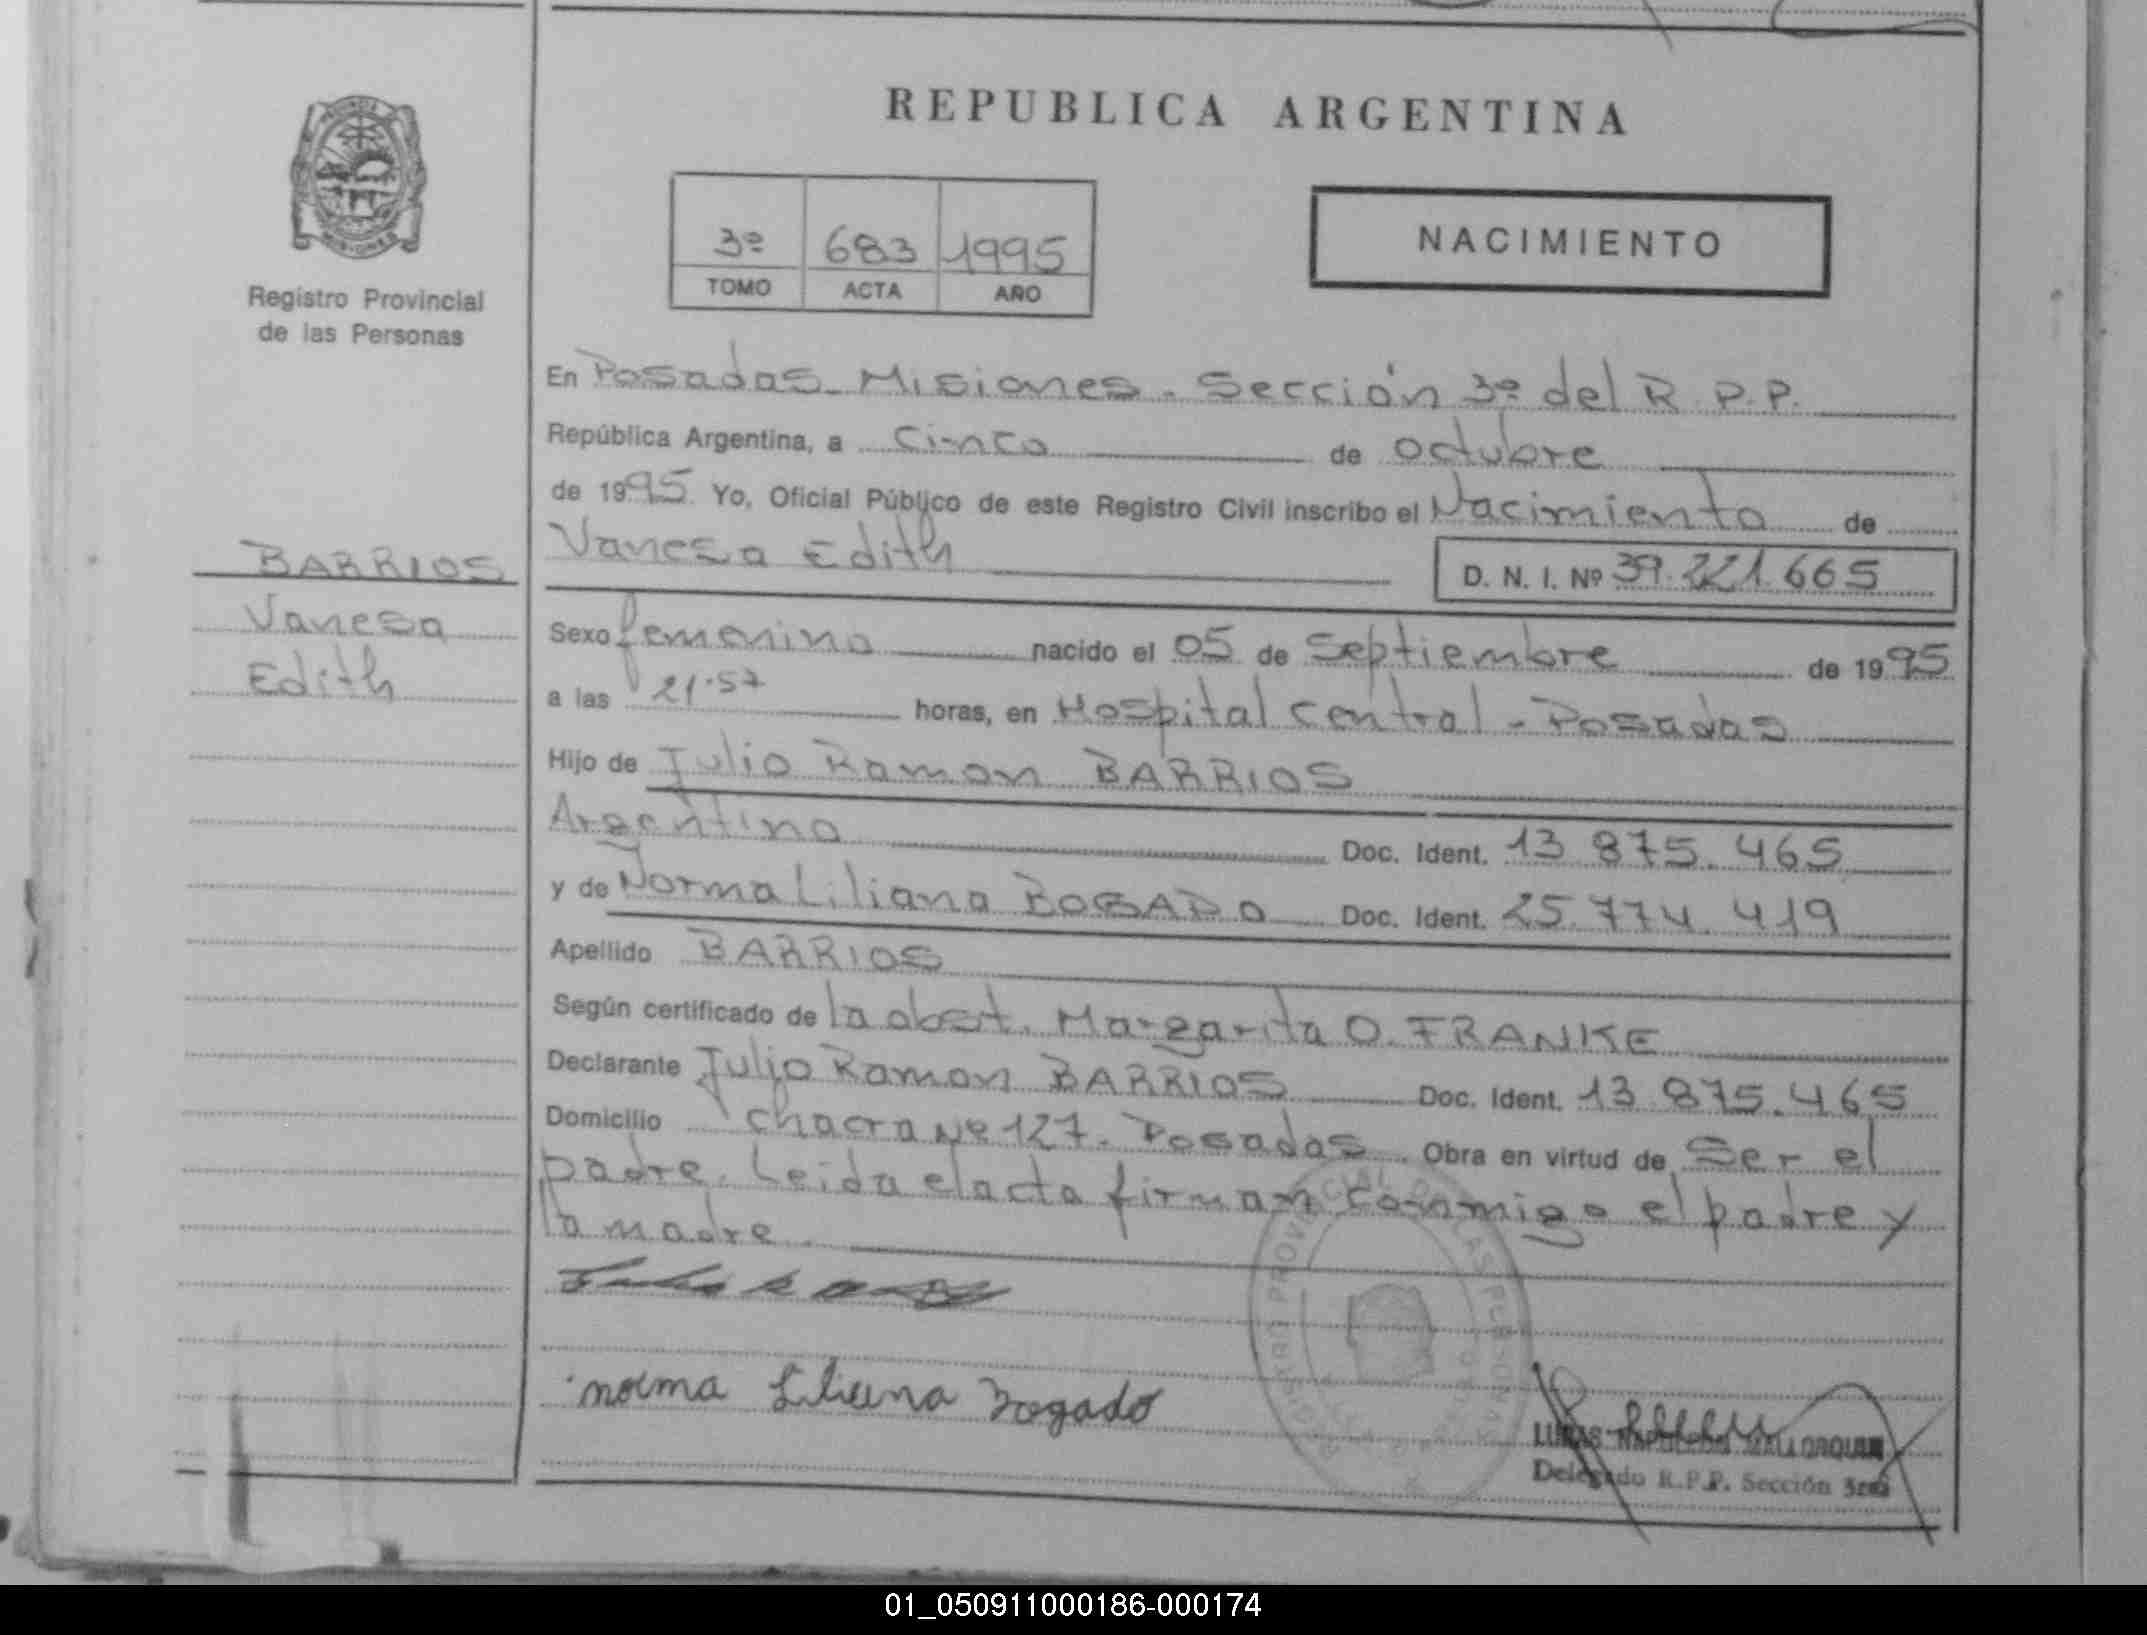 REPUBLICA ARGENTINA
NACIMIENTO
3º 683 1995
TOMO ACTA AÑO
PROVINCIA
MISIONES
Registro Provincial
de las Personas
BARRIOS
Vanesa
Edith
En Posadas Misiones - Sección 3º del R.P.P.
República Argentina, a cinco de octubre
de 1995. Yo, Oficial Público de este Registro Civil inscribo el Nacimiento de
Vanesa Edith D. N. I. Nº 39.221.665
Sexo femenino nacido el 05 de Septiembre de 1995
a las 21.57 horas, en Hospital central - Posadas
Hijo de Julio Ramon BARRIOS
Argentino Doc. Ident. 13 875.465
y de Norma Liliana BOGADO Doc. Ident. 25.774.419
Apellido BARRIOS
Según certificado de la obst. Margarita O. FRANKE
Declarante Julio Ramon BARRIOS Doc. Ident. 13 875.465
Domicilio chacra Nº 127. Posadas Obra en virtud de Ser el
padre. Leida el acta firman conmigo el padre y
la madre.
norma Liliana Bogado
Delegado R.P.P. Sección 3ra
01_050911000186-000174